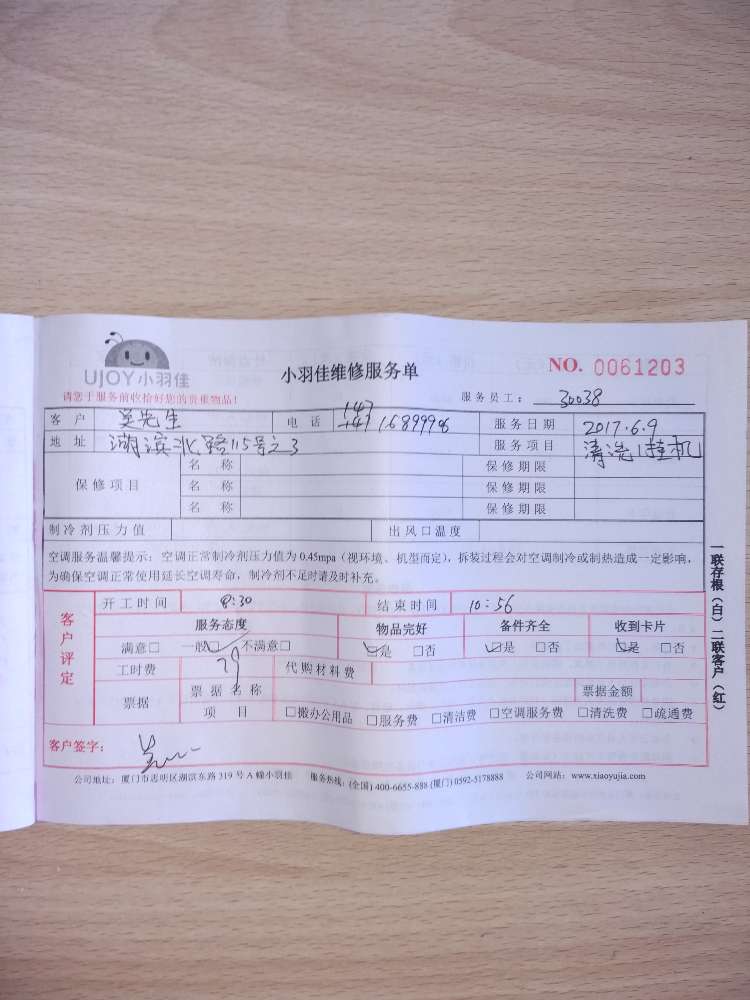 UJOY小羽佳
小羽佳维修服务单
NO. 0061203
请您于服务前收拾好您的贵重物品！
服务员工： 30038
客户 吴先生 电话 147 1689998 服务日期 2017.6.9
地址 湖滨北路115号之3 服务项目 清洗1挂机
保修项目 名称 保修期限
名称 保修期限
名称 保修期限
制冷剂压力值 出风口温度
空调服务温馨提示：空调正常制冷剂压力值为 0.45mpa（视环境、机型而定），拆装过程会对空调制冷或制热造成一定影响，
为确保空调正常使用延长空调寿命，制冷剂不足时请及时补充。
客户评定
开工时间 8:30 结束时间 10:56
服务态度 物品完好 备件齐全 收到卡片
满意□ 一般□ 不满意□ □是 □否 □是 □否 □是 □否
工时费 79 代购材料费
票据 票据名称 票据金额
项目 □搬办公用品 □服务费 □清洁费 □空调服务费 □清洗费 □疏通费
客户签字： 吴
公司地址：厦门市思明区湖滨东路 319 号 A 幢小羽佳 服务热线：(全国) 400-6655-888 (厦门) 0592-5178888 公司网站：www.xiaoyujia.com
一联存根（白）二联客户（红）